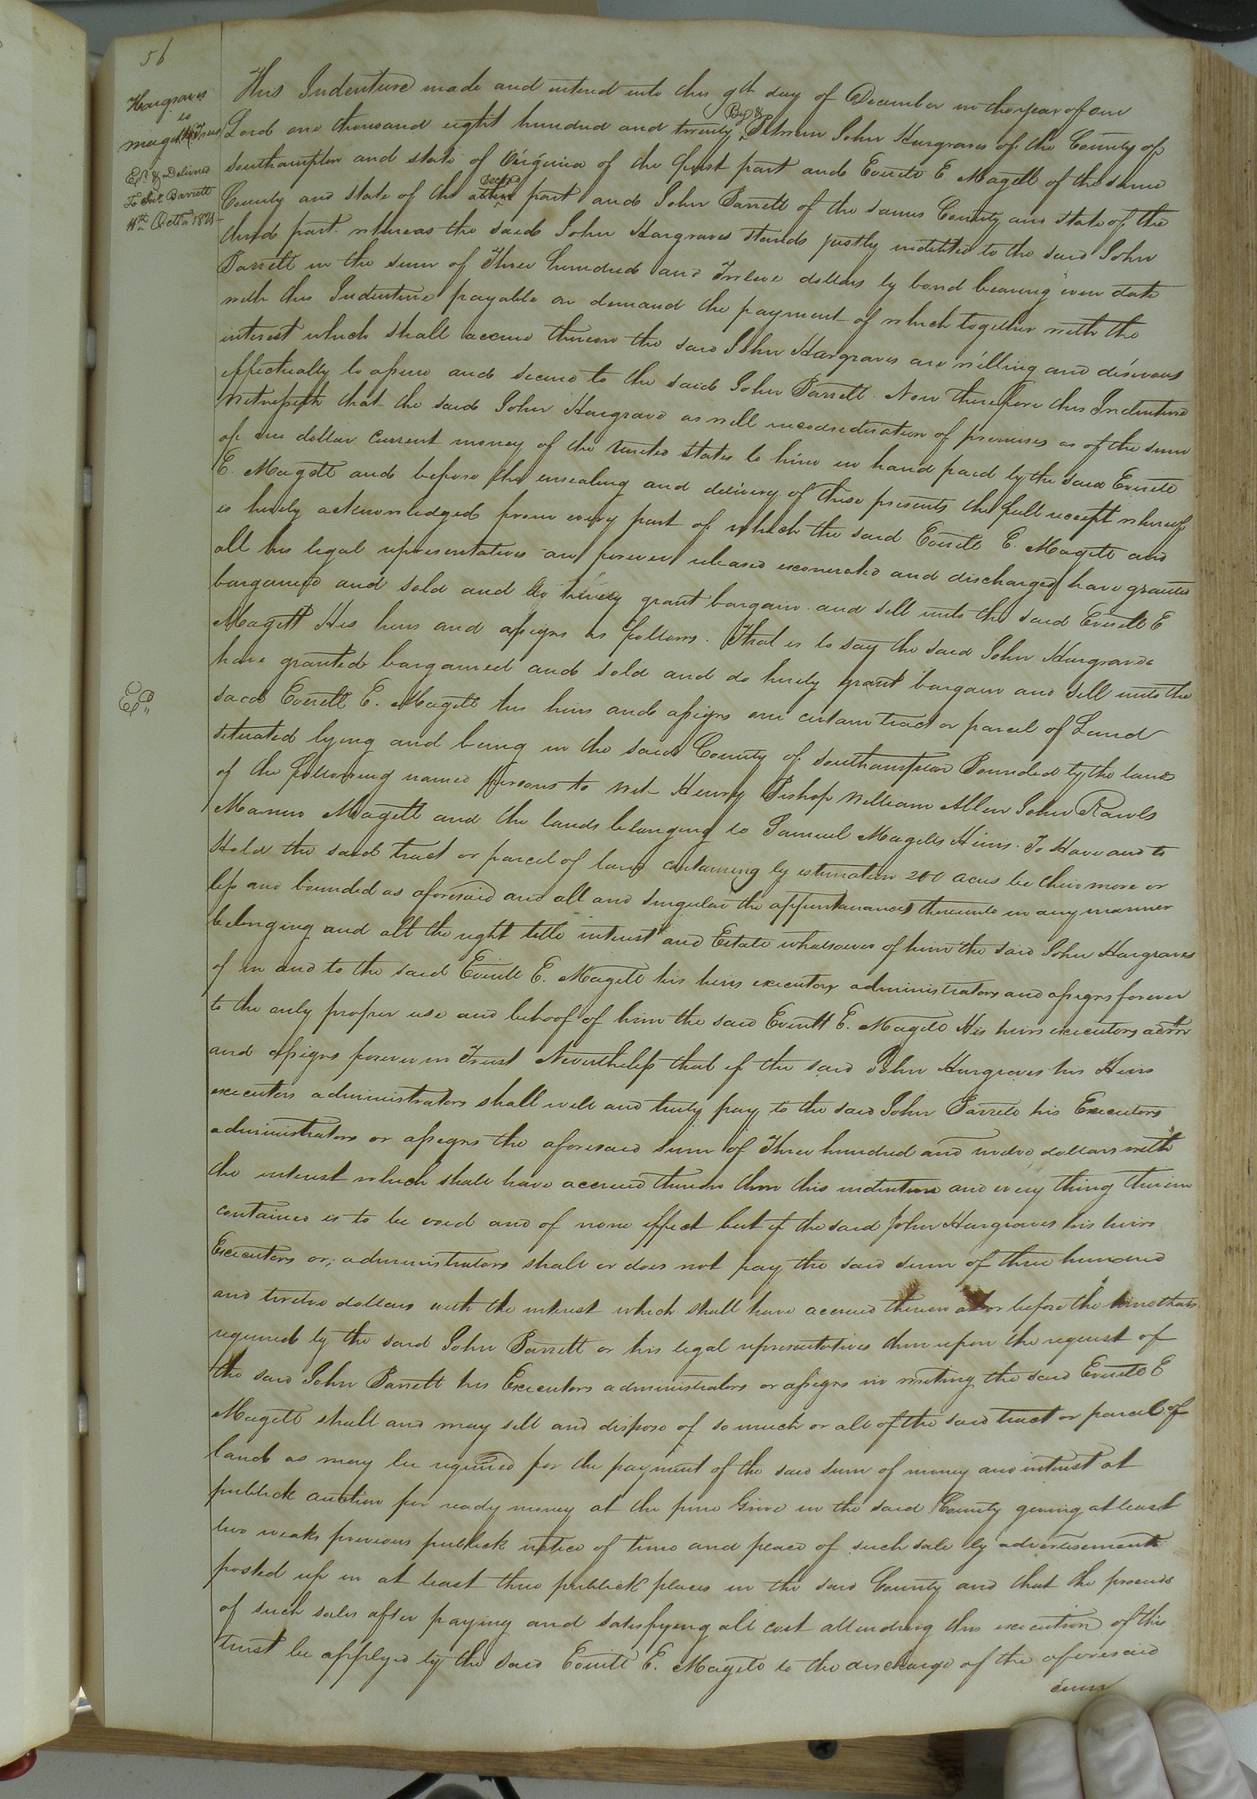 56
Hargraves
to
Magett &c Trust
Exd & Delived
To Jno. Barrett
11th Octr 1821
Ex
This Indenture made and entered into this 9th day of December in the year of our
Lord one thousand eight hundred and twenty By & Between John Hargraves of the County of
Southampton and state of Virginia of the first part and Everett E Magett of the same
County and state of the second part and John Barrett of the same County and state of the
third part whereas the said John Hargraves stands justly indebted to the said John
Barrett in the sum of Three hundred and Twelve dollars by bond bearing even date
with this Indenture payable on demand the payment of which together with the
interest which shall accrue thereon the said John Hargraves are willing and desirous
effectually to assure and secure to the said John Barrett. Now therefore this Indenture
Witnesseth that the said John Hargrave as well in consideration of premises as of the sum
of one dollar current money of the United States to him in hand paid by the said Everett
E. Magett and before the ensealing and delivery of these presents the full receipt whereof
is hereby acknowledged from every part of which the said Everett E. Magett and
all his legal representatives are forever released exonerated and discharged have granted
bargained and sold and do hereby grant bargain and sell unto the said Everett E
Magett His heirs and assigns as follows. That is to say the said John Hargrave
have granted bargained and sold and do hereby grant bargain and sell unto the
said Everett E. Magett his heirs and assigns one certain tract or parcel of Land
situated lying and being in the said County of Southampton Bounded by the land
of the following named persons to wit Henry Bishop William Allen John Rawls
Magett and the lands belonging to Samuel Magetts Heirs. To Have and to
Hold the said tract or parcel of land containing by estimation 200 acres be their more or
less and bounded as aforesaid and all and singular the appurtenances thereunto in any manner
belonging and all the right title interest and Estate whatsoever of him the said John Hargraves
of in and to the said Everett E. Magett his heirs executors administrators and assigns forever
to the only proper use and behoof of him the said Everett E. Magett His heirs executors admr
and assigns forever in Trust Nevertheless that if the said John Hargraves his Heirs
executors administrators shall well and truly pay to the said John Barrett his Executors
administrators or assigns the aforesaid sum of Three hundred and twelve dollars with
the interest which shall have accrued thereon then this indenture and every thing therein
contained is to be void and of none effect but if the said John Hargraves his heirs
Executors or, administrators shall or does not pay the said sum of three hundred
and twelve dollars with the interest which shall have accrued thereon at or before the
required by the said John Barrett or his legal representatives then upon the request of
the said John Barrett his Executors administrators or assigns in writing the said Everett E
Magett shall and may sell and dispose of so much or all of the said tract or parcel of
land as may be required for the payment of the said sum of money and interest at
publick auction for ready money at the in the said County giving at least
two weeks previous publick notice of time and place of such sale by advertisement
posted up in at least three publick places in the said County and that the proceeds
of such sales after paying and satisfying all cost attending this execution of this
trust be applyed by the said Everett E. Magett to the discharge of the aforesaid
sum